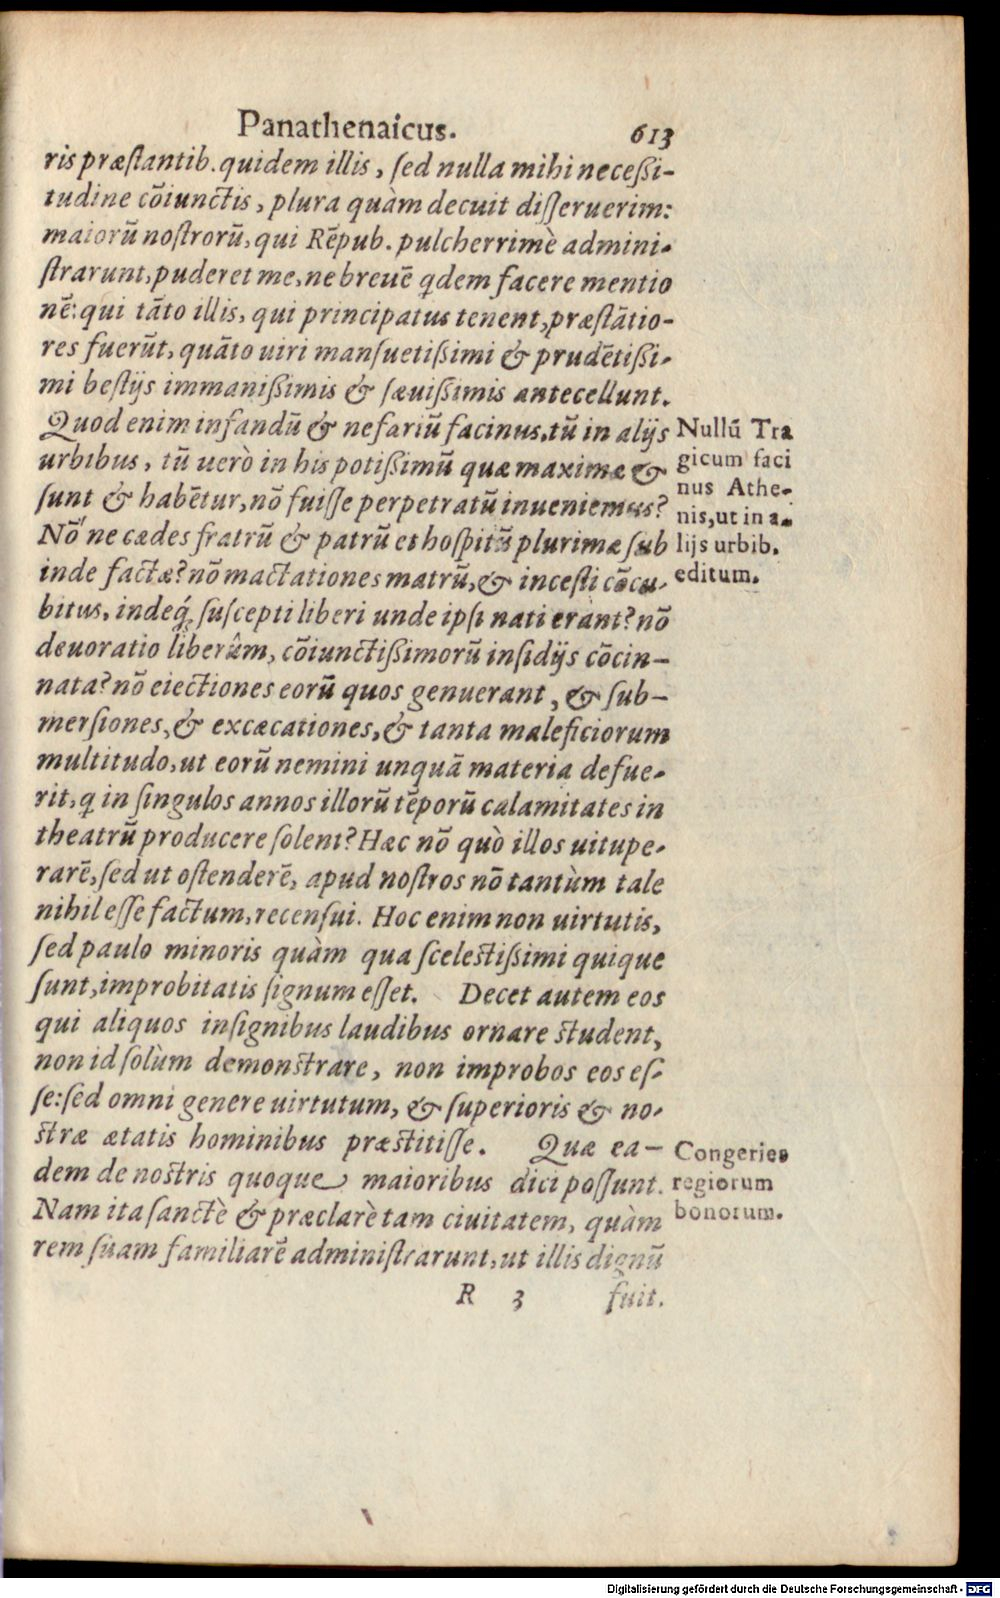 Panathenaicus. 613
ris præstantib. quidem illis, sed nulla mihi necessi-
tudine cōiunctis, plura quàm decuit disseruerim:
maiorū nostrorū, qui Rēpub. pulcherrimè admini-
strarunt, puderet me, ne breuē qdem facere mentio
nē: qui tāto illis, qui principatus tenent, præstātio-
res fuerūt, quāto uiri mansuetissimi & prudētissi-
mi bestijs immanissimis & sæuissimis antecellunt.
Quod enim infandū & nefariū facinus, tū in alijs
urbibus, tū uerò in his potissimū quæ maximæ &
sunt & habētur, nō fuisse perpetratū inueniemus?
Nō ne cædes fratrū & patrū et hospitū plurimæ sub
inde factæ? nō mactationes matrū, & incesti cōcu-
bitus, indeq́; suscepti liberi unde ipsi nati erant? nō
deuoratio liberûm, cōiunctissimorū insidijs cōcin-
nata? nō eiectiones eorū quos genuerant, & sub-
mersiones, & excæcationes, & tanta maleficiorum
multitudo, ut eorū nemini unquā materia defue-
rit, q in singulos annos illorū tēporū calamitates in
theatrū producere solent? Hæc nō quò illos uitupe-
rarē, sed ut ostenderē, apud nostros nō tantùm tale
nihil esse factum, recensui. Hoc enim non uirtutis,
sed paulo minoris quàm qua scelestissimi quique
sunt, improbitatis signum esset. Decet autem eos
qui aliquos insignibus laudibus ornare student,
non id solùm demonstrare, non improbos eos es-
se: sed omni genere uirtutum, & superioris & no-
stræ ætatis hominibus præstitisse. Quæ ea-
dem de nostris quoque maioribus dici possunt.
Nam ita sanctè & præclarè tam ciuitatem, quàm
rem suam familiarē administrarunt, ut illis dignū
R 3 fuit.
Nullū Tra
gicum faci
nus Athe-
nis, ut in a-
lijs urbib.
editum.
Congeries
regiorum
bonorum.
Digitalisierung gefördert durch die Deutsche Forschungsgemeinschaft - DFG